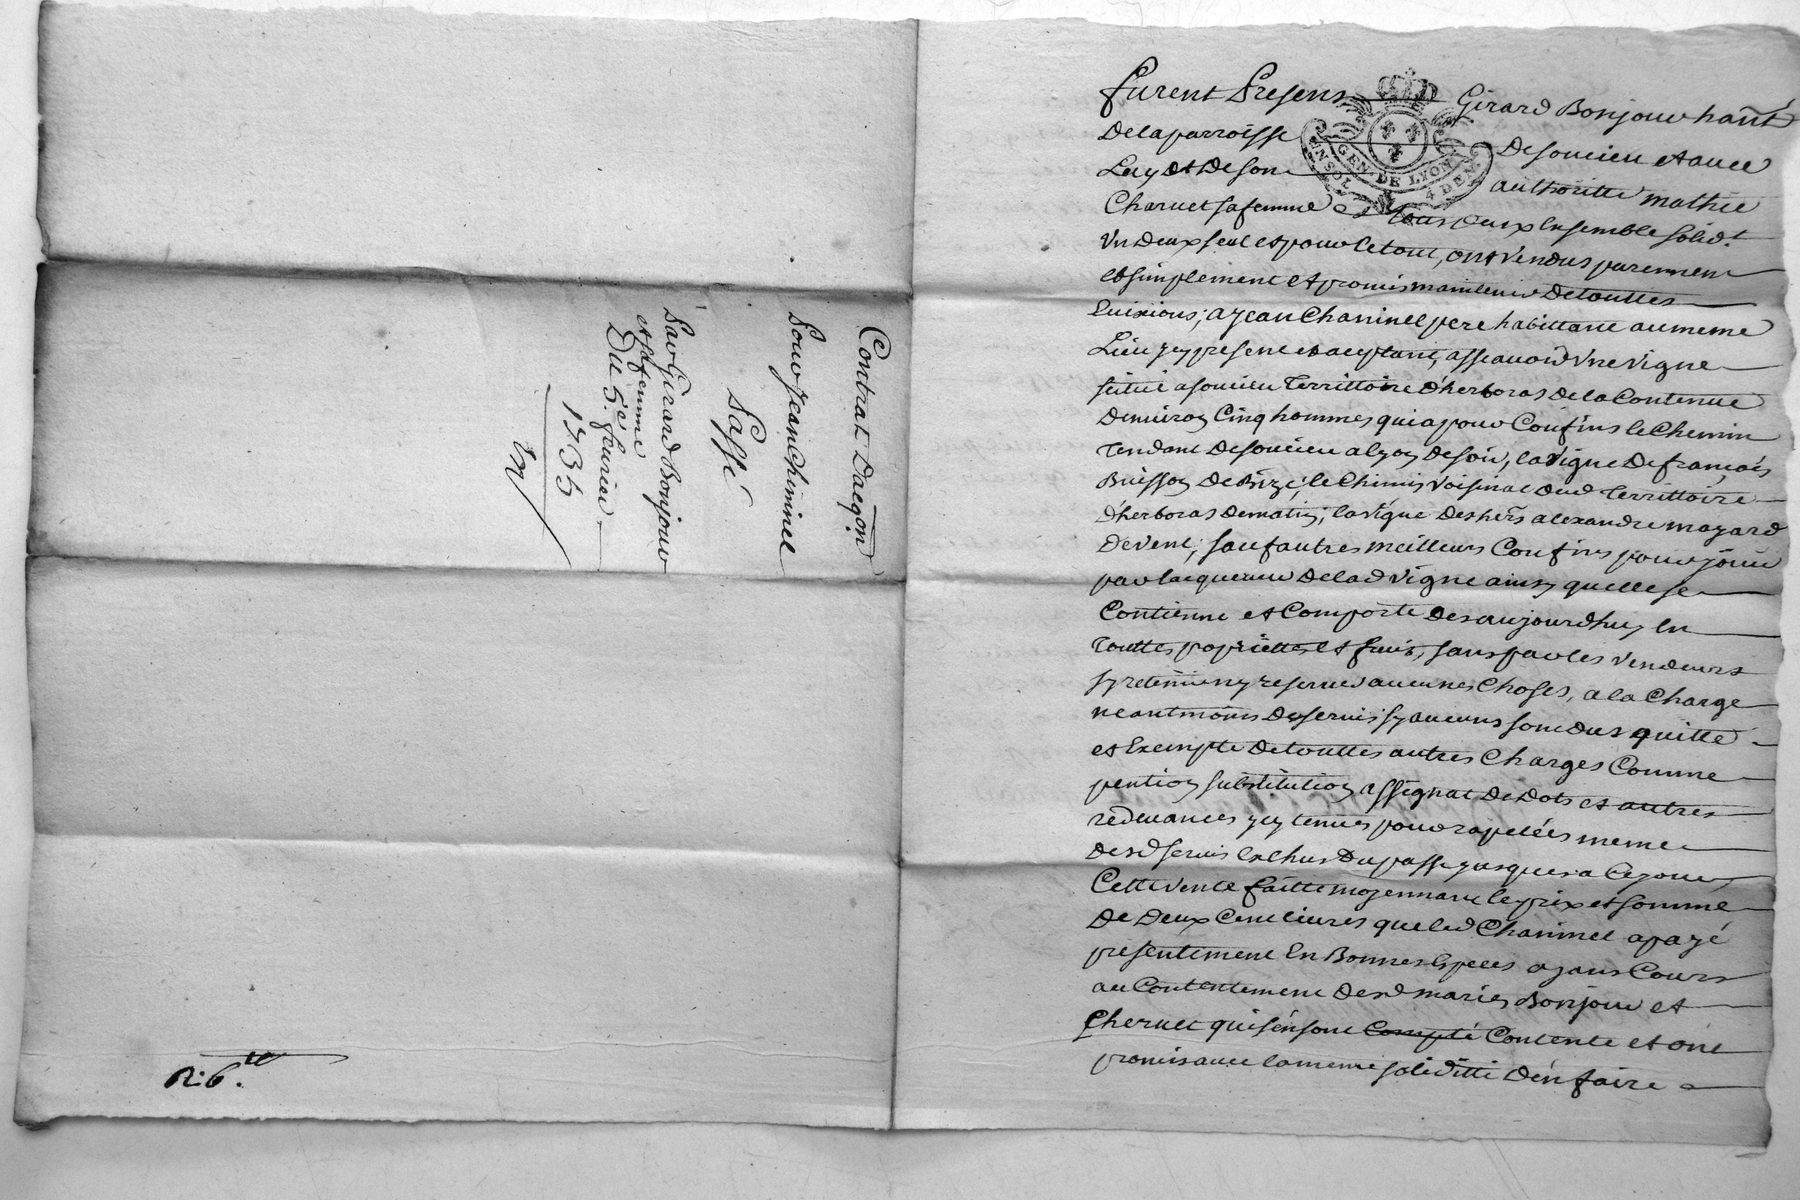 Contrat Dacqon.
Pour Jean Chiminel
Passé
Par Girard Bonjour
et sa femme
Du 5e. feurier
1735
R. 6.
furent Presens Girard Bonjour hant
De la parroisse De soucieu et auec
Luy et De son authoritte mathie
Charuet sa femme tous deux Ensemble solidt.
Un Deux seul et pour le tout, ont vendus purement
et simplement et promis maintenir De touttes
Euixions, a Jean Chaninel pere habittant au meme
Lieu yey present et aceptant, assauoir Une vigne
scitué a soucieu Territtoire D'herboras De la Contenue
Denuiron Cinq hommes qui a pour Confins le Chemin
Tendant De soucieu a lyon De soir, la vigne De francois
Buisson De Bize, le Chimin voisinal Dud Territtoire
D'herboras De matin, la vigne Des hers alexandre mazard
De vent, sauf autres meilleurs Confins pour jouir
par lacquereur De lad vigne ainsy quelle se
Contienne et Comporte Des aujourdhuy En
Touttes proprietter et fruis, sans par les vendeurs
sy retenir ny reseruer aucunes Choses, a la Charge
neantmoins De seruis sy aucuns sont dus quitte
et Exempte De touttes autres Charges Comme
pention substitution assignat De Dots et autres
redeuances yey tenues pour rapelées meme
Desd seruis Echus Du passé jusques a Ce jour,
Cette vente faitte moyennant le prix et somme
De Deux Cent liures que led Chaninel a payé
presentement En Bonnes Especes ayans Cours
au Contentement Desd mariés Bonjour et
Cheruet qui sen sont Compté Contente et ont
promis auec la meme soliditté D'en faire
GEN. DE LYON
UN SOL 4 DEN.